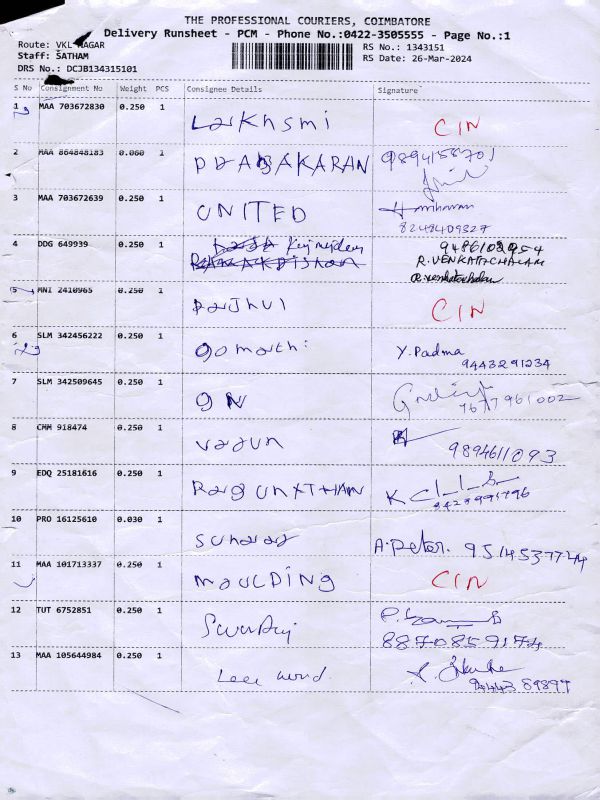 THE PROFESSIONAL COURIERS, COIMBATORE
Delivery Runsheet - PCM - Phone No.:0422-3505555 - Page No.:1
Route: VKL NAGAR
RS No.: 1343151
Staff: SATHAM
RS Date: 26-Mar-2024
DRS No.: DCJB134315101
S No Consignment No Weight PCS Consignee Details Signature
1 MAA 703672830 0.250 1 Larkhsmi CIN
2 MAA 864848183 0.060 1 PRABAKARAN 9894158701
3 MAA 703672639 0.250 1 UNITED Hariharan
8248409327
4 DDG 649939 0.250 1
R.VENKATACHALAM
R.venkatachalam
5 MNI 2410965 0.250 1 CIN
6 SLM 342456222 0.250 1 gomarth: Y. Padma
9443291234
7 SLM 342509645 0.250 1 GN
7677961002
8 CMM 918474 0.250 1 varun
9894611093
9 EDQ 25181616 0.250 1
10 PRO 16125610 0.030 1 A.Peter. 9514537744
11 MAA 101713337 0.250 1 MOULDING CIN
12 TUT 6752851 0.250 1
8870859174
13 MAA 105644984 0.250 1